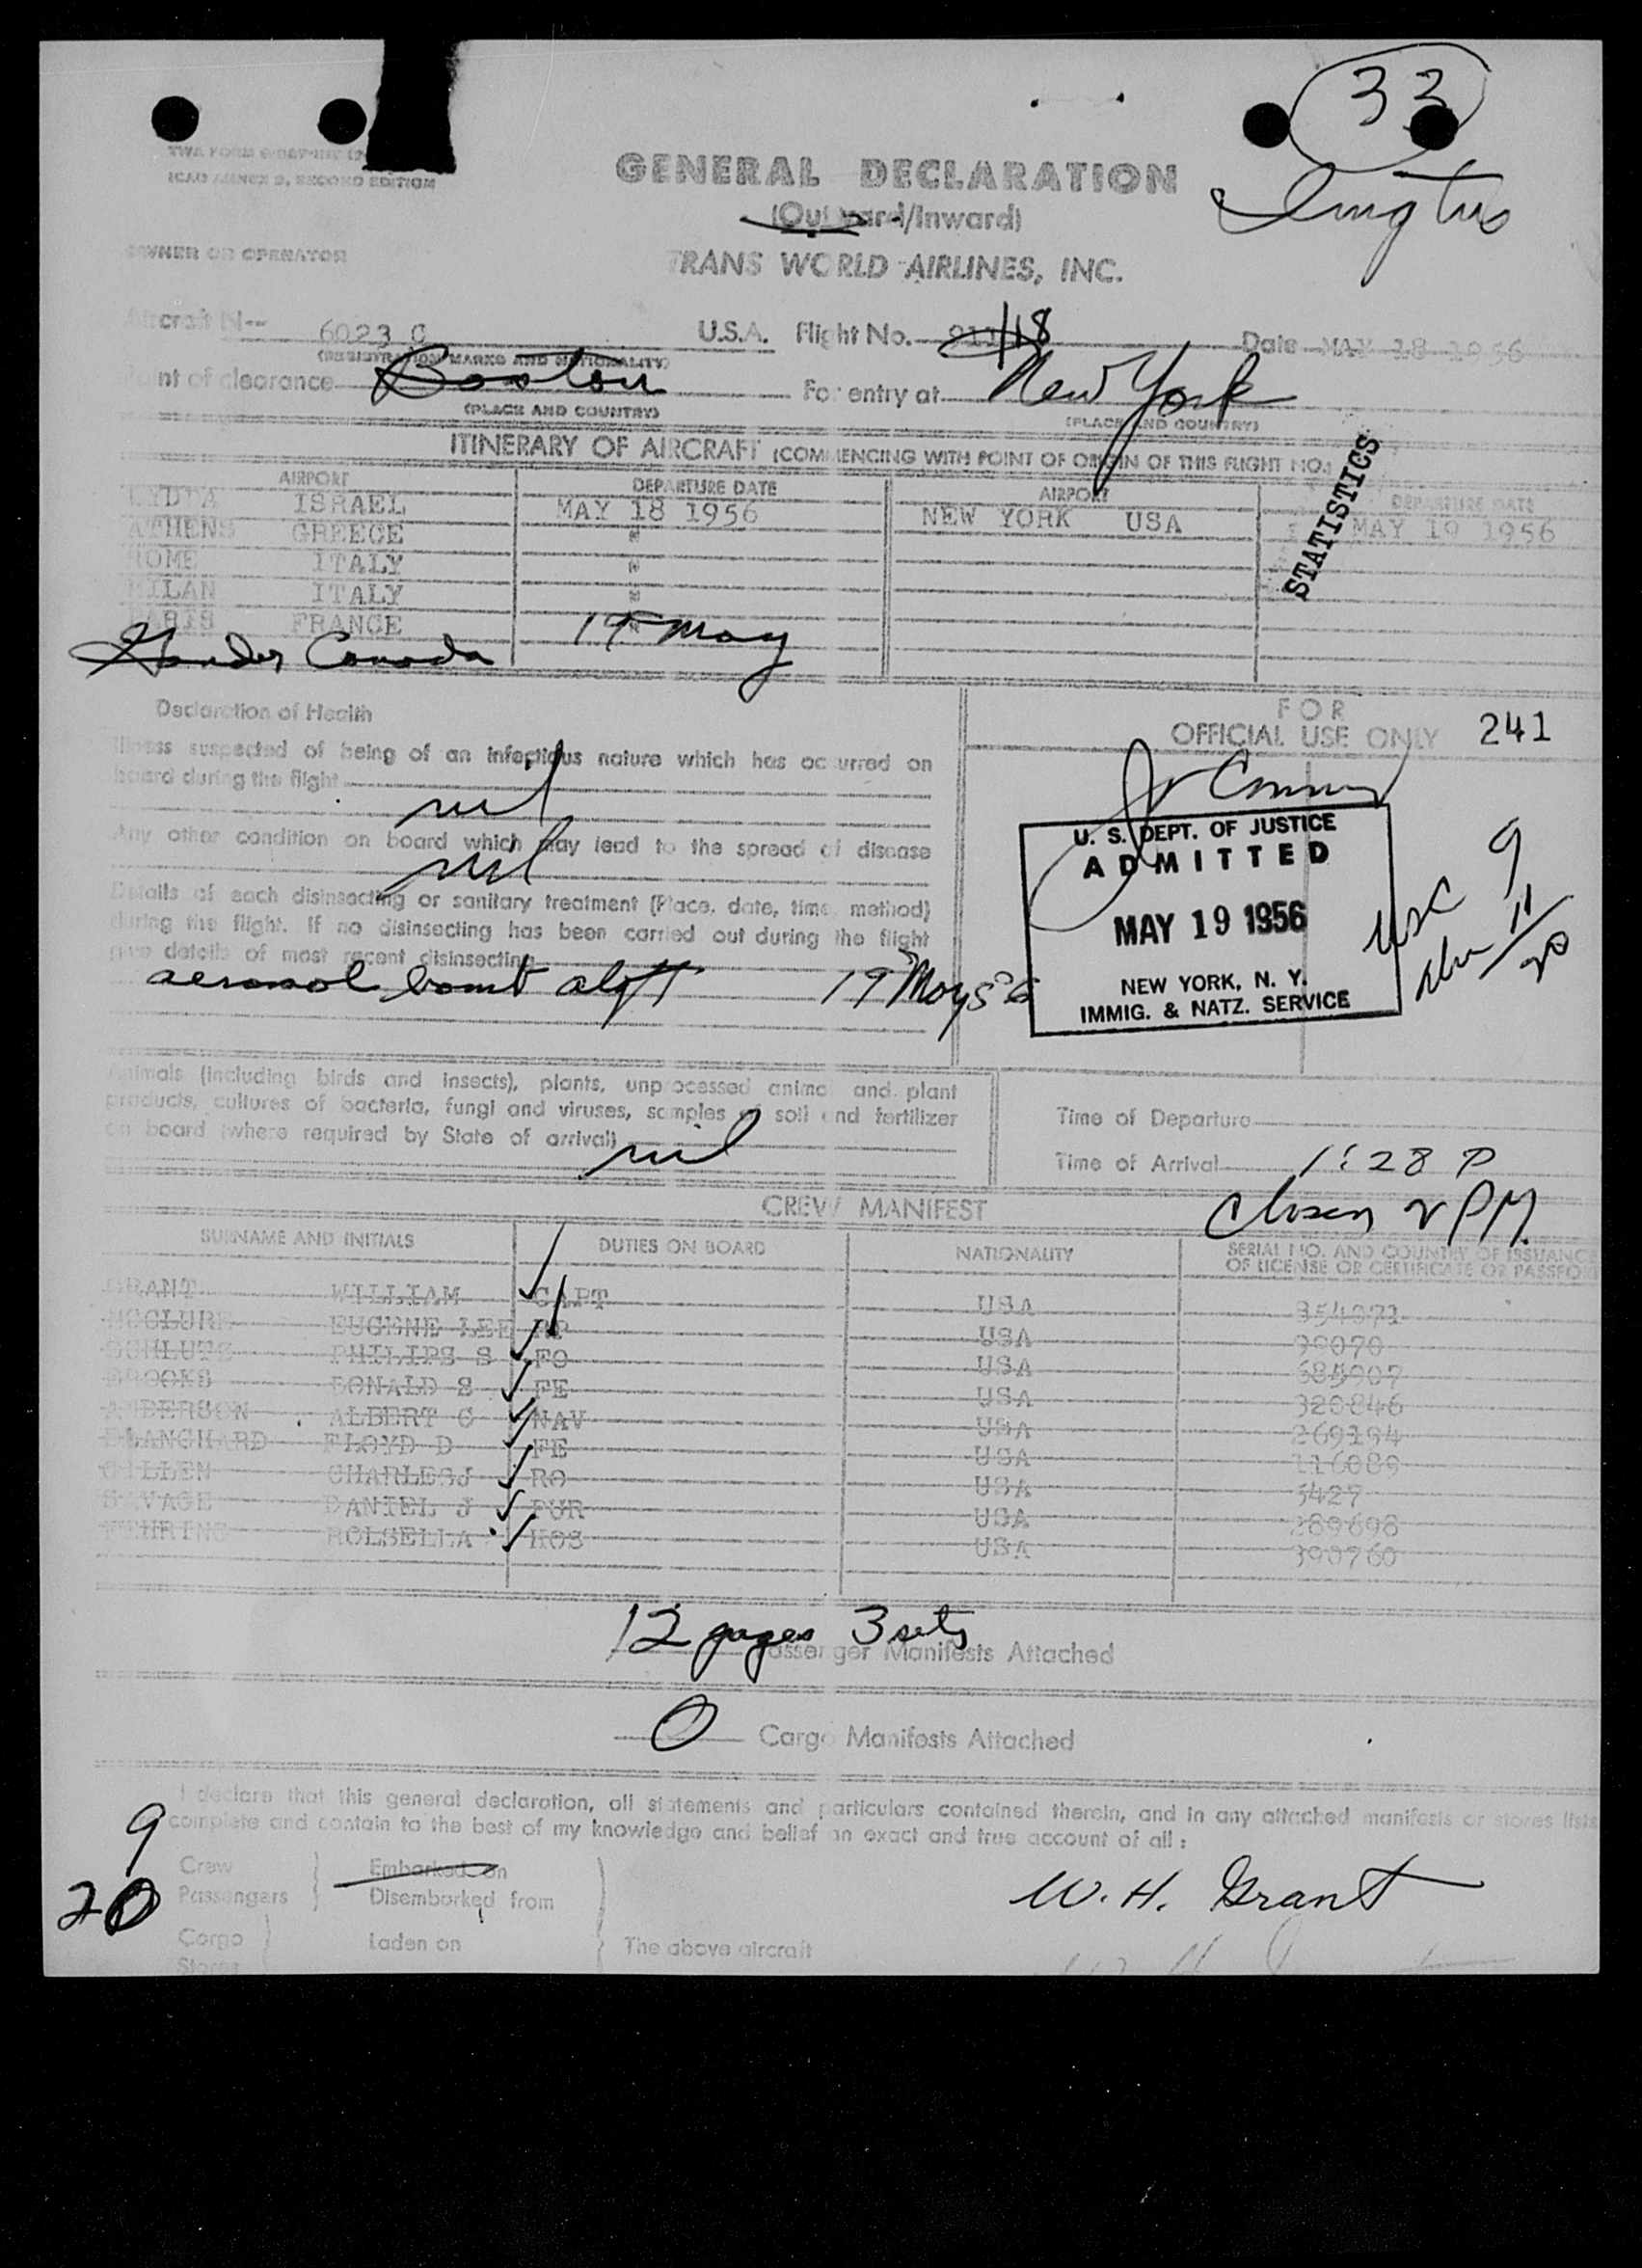 33
ICAO ANNEX 9, SECOND EDITION
GENERAL DECLARATION
(Outward/Inward)
OWNER OR OPERATOR
TRANS WORLD AIRLINES, INC.
Aircraft 6023 C U.S.A. Flight No. 18 Date MAY 18 1956
(REGISTRATION MARKS AND NATIONALITY)
Point of clearance Boston For entry at New York
(PLACE AND COUNTRY) (PLACE AND COUNTRY)
STATISTICS
ITINERARY OF AIRCRAFT (COMMENCING WITH POINT OF ORIGIN OF THIS FLIGHT NO.)
AIRPORT DEPARTURE DATE AIRPORT DEPARTURE DATE
LYDDA ISRAEL MAY 18 1956 NEW YORK USA MAY 19 1956
ATHENS GREECE "
ROME ITALY "
MILAN ITALY "
PARIS FRANCE "
Gander Canada 19 May
Declaration of Health
Illness suspected of being of an infectious nature which has occurred on
board during the flight
nil
Any other condition on board which may lead to the spread of disease
nil
Details of each disinsecting or sanitary treatment (Place, date, time, method)
during the flight. If no disinsecting has been carried out during the flight
give details of most recent disinsecting
aerosol bomb aloft 19 May 56
FOR
OFFICIAL USE ONLY 241
U. S. DEPT. OF JUSTICE
ADMITTED
MAY 19 1956
NEW YORK, N. Y.
IMMIG. & NATZ. SERVICE
USC 9
11
20
Animals (including birds and insects), plants, unprocessed animal and plant
products, cultures of bacteria, fungi and viruses, samples of soil and fertilizer
on board (where required by State of arrival)
nil
Time of Departure
Time of Arrival 1:28 P
2 PM
CREW MANIFEST
SURNAME AND INITIALS DUTIES ON BOARD NATIONALITY SERIAL NO. AND COUNTRY OF ISSUANCE
OF LICENSE OR CERTIFICATE OR PASSPORT
GRANT WILLIAM CAPT USA 354071
MCCLURE EUGENE LEE USA 99070
PHILIPS S FO USA 685907
BROOKS DONALD S FE USA 320846
ANDERSON ALBERT C NAV USA 269194
BLANCHARD FLOYD D FE USA 116089
CHARLES J RO USA 5427
SAVAGE DANIEL J PUR USA 289698
ROLSELLA HOS USA 390760
12 pages 3 sets
Passenger Manifests Attached
0 Cargo Manifests Attached
I declare that this general declaration, all statements and particulars contained therein, and in any attached manifests or stores lists
complete and contain to the best of my knowledge and belief an exact and true account of all :
9 Crew Embarked on
20 Passengers Disembarked from
W. H. Grant
Cargo Laden on The above aircraft
Stores